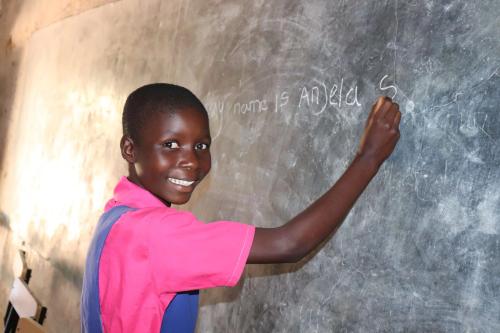 My name is Angela S